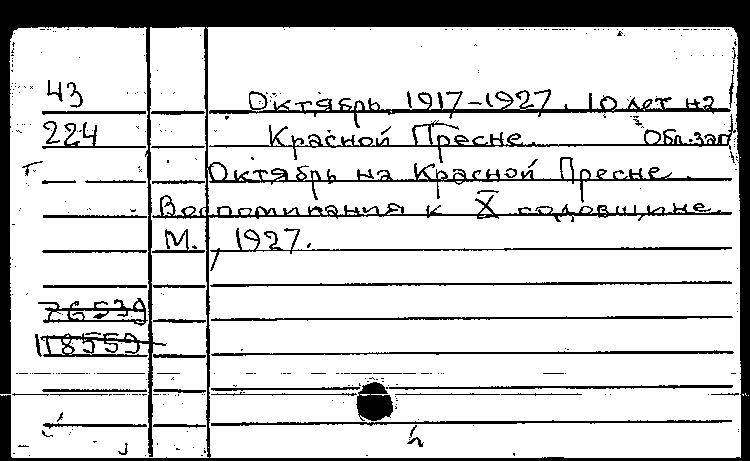 43
Октябрь 1917-1927. 10 лет на
224 Красной Пресне. Обл. заг
Октябрь на Красной Пресне.
Воспоминания к X годовщине.
М., 1927.
76539
118559